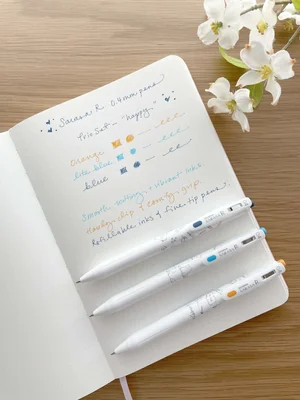 Sarasa R 0.4mm pens
Trio Set - "happy"
Orange
lite blue
blue
Smooth writing + vibrant inks.
handy clip & comfy grip.
Refillable inks & fine tip pens.